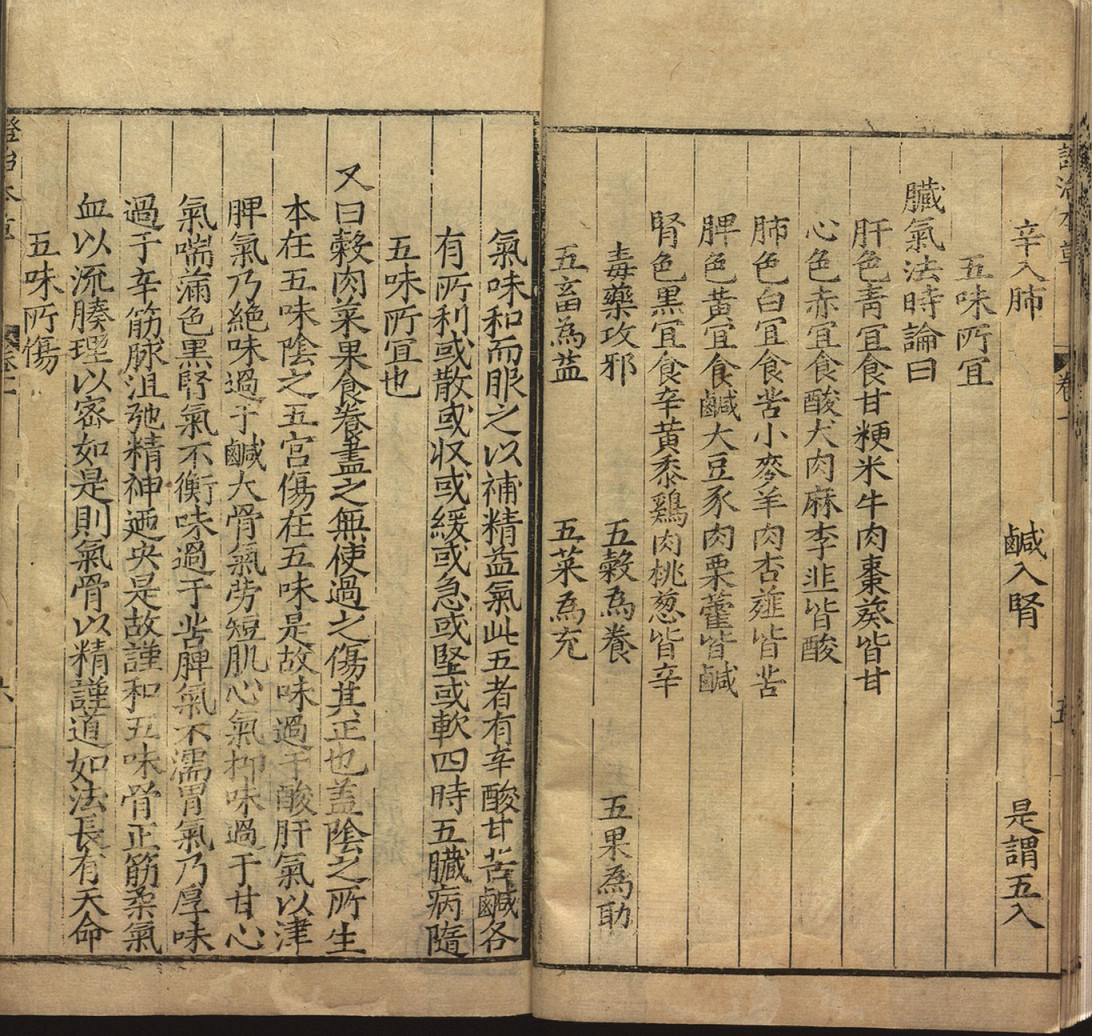 辛入肺 鹹入腎 是謂五入
五味所宜
臟氣法時論曰
肝色青宜食甘粳米牛肉棗葵皆甘
心色赤宜食酸犬肉麻李韭皆酸
肺色白宜食苦小麥羊肉杏薤皆苦
脾色黃宜食鹹大豆豕肉栗藿皆鹹
腎色黑宜食辛黃黍鷄肉桃葱皆辛
毒藥攻邪 五穀為養 五果為助
五畜為益 五菜為充
氣味和而服之以補精益氣此五者有辛酸甘苦鹹各
有所利或散或收或緩或急或堅或軟四時五臟病隨
五味所宜也
又曰穀肉菜果食養盡之無使過之傷其正也蓋陰之所生
本在五味陰之五宮傷在五味是故味過于酸肝氣以津
脾氣乃絶味過于鹹大骨氣勞短肌心氣抑味過于甘心
氣喘滿色黑腎氣不衡味過于苦脾氣不濡胃氣乃厚味
過于辛筋脉沮弛精神廼央是故謹和五味骨正筋柔氣
血以流腠理以密如是則氣骨以精謹道如法長有天命
五味所傷